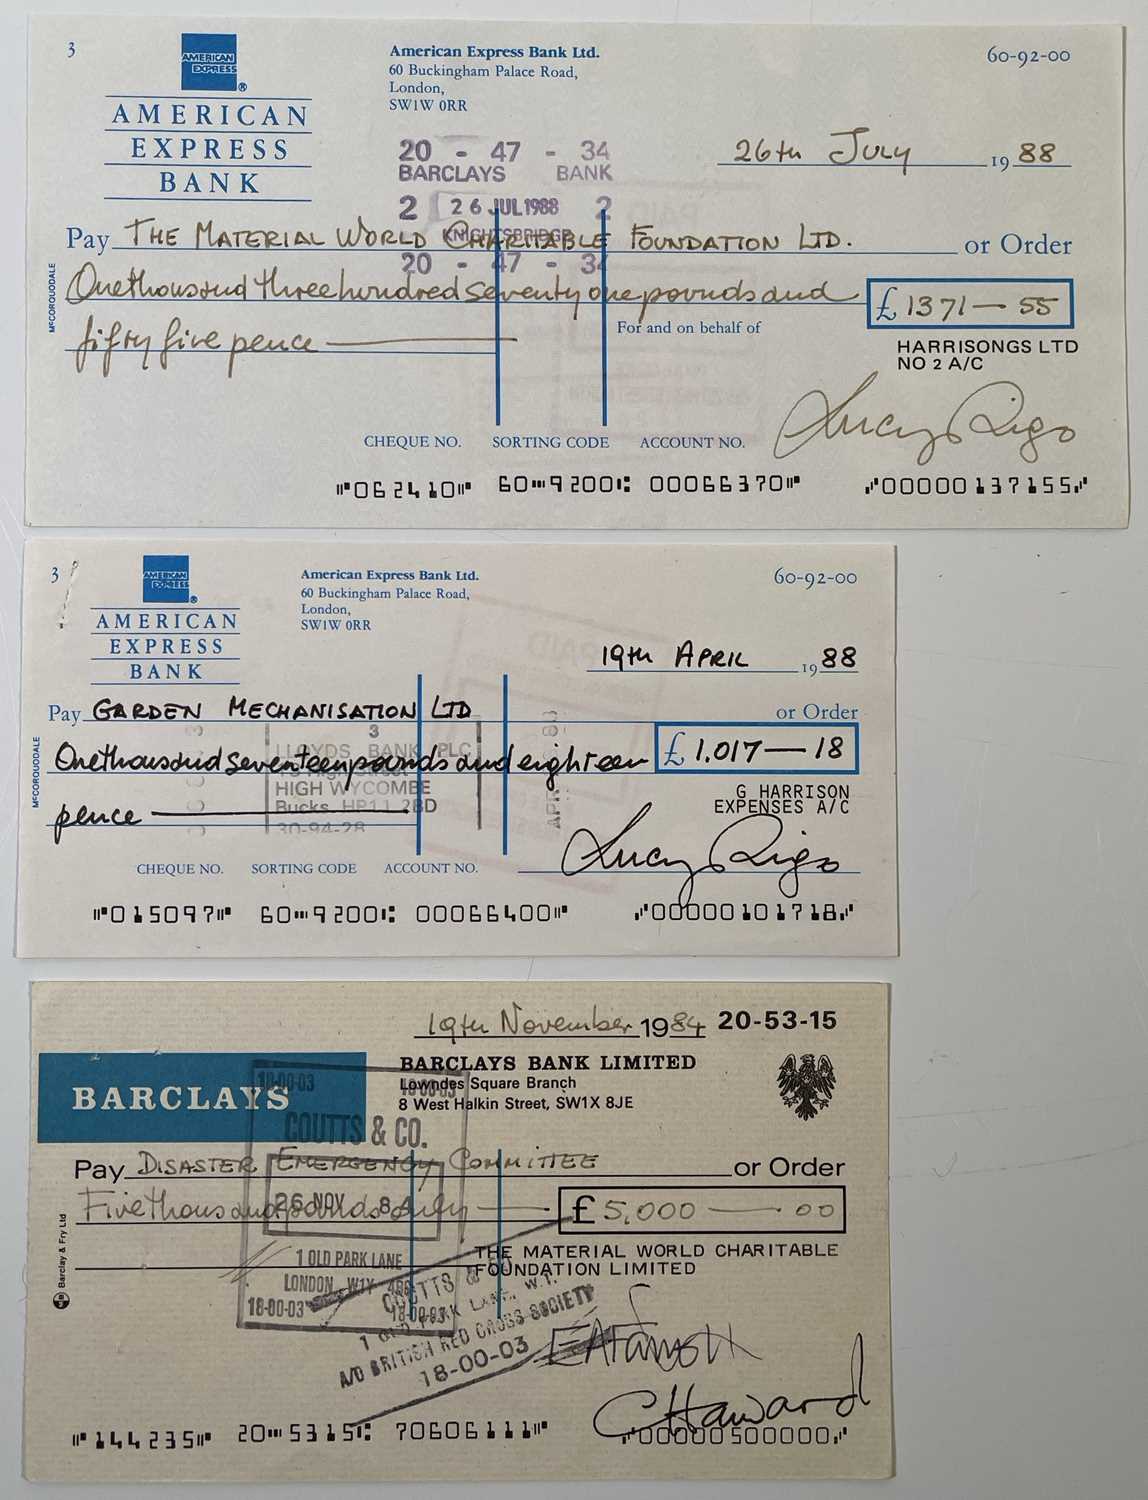 3
AMERICAN
EXPRESS
®
AMERICAN
EXPRESS
BANK
American Express Bank Ltd.
60 Buckingham Palace Road,
London,
SW1W 0RR
60-92-00
20 - 47 - 34
BARCLAYS BANK
2 26 JUL 1988 2
KNIGHTSBRIDGE
20 - 47 - 34
26th July 1988
Pay THE MATERIAL WORLD CHARITABLE FOUNDATION LTD. or Order
One thousand three hundred seventy one pounds and
£ 1371 — 55
fifty five pence
For and on behalf of
HARRISONGS LTD
NO 2 A/C
McCORQUODALE
Lucy Rigo
CHEQUE NO. SORTING CODE ACCOUNT NO.
⑈062410⑈ 60⑉9200⑆ 00066370⑈ ⑇00000137155⑇
3
AMERICAN
EXPRESS
®
AMERICAN
EXPRESS
BANK
American Express Bank Ltd.
60 Buckingham Palace Road,
London,
SW1W 0RR
60-92-00
PAID
19th APRIL 1988
Pay GARDEN MECHANISATION LTD or Order
3
LLOYDS BANK PLC
High Street
HIGH WYCOMBE
Bucks HP11 2BD
30-94-28
One thousand seventeen pounds and eighteen
£ 1,017 — 18
pence
G HARRISON
EXPENSES A/C
McCORQUODALE
Lucy Rigo
CHEQUE NO. SORTING CODE ACCOUNT NO.
⑈015097⑈ 60⑉9200⑆ 00066400⑈ ⑇00000101718⑇
19th November 1984 20-53-15
BARCLAYS
BARCLAYS BANK LIMITED
Lowndes Square Branch
8 West Halkin Street, SW1X 8JE
18-00-03 18-00-03
COUTTS & CO.
26 NOV 84
1 OLD PARK LANE
LONDON W1Y
18-00-03 18-00-03
Pay DISASTER EMERGENCY COMMITTEE or Order
Five thousand pounds only
£ 5,000 — 00
THE MATERIAL WORLD CHARITABLE
FOUNDATION LIMITED
COUTTS & CO
1 OLD PARK LANE, W.1.
A/C BRITISH RED CROSS SOCIETY
18-00-03
Barclay & Fry Ltd
C Haward
⑈144235⑈ 20⑉5315⑆ 70606111⑈ ⑇00000500000⑇